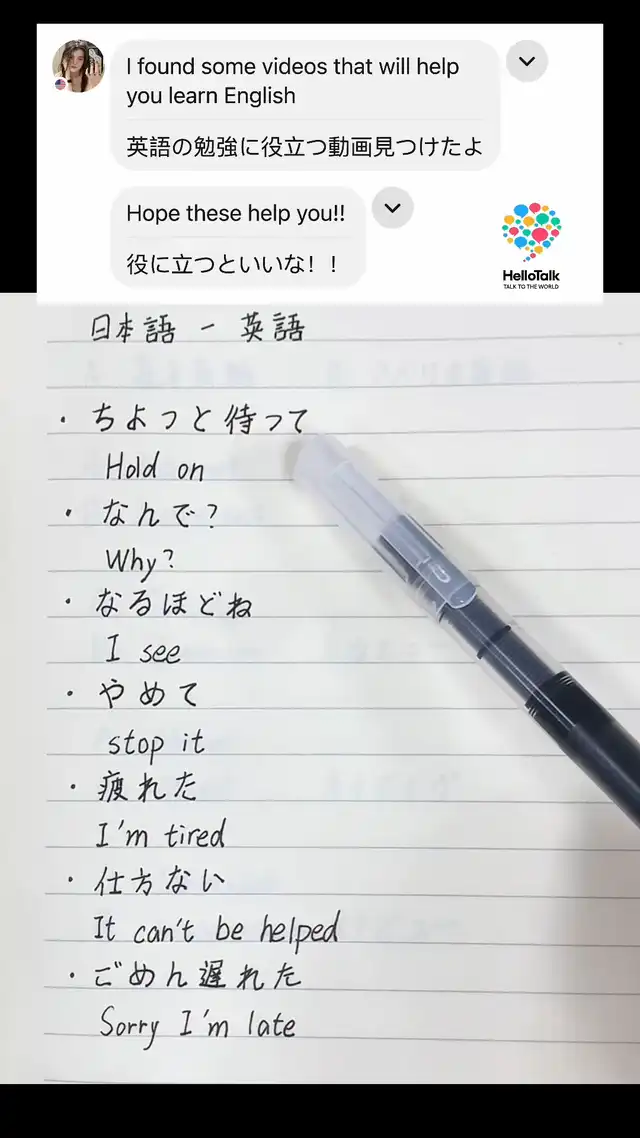 I found some videos that will help
you learn English
英語の勉強に役立つ動画見つけたよ
Hope these help you!!
役に立つといいな！！
HelloTalk
TALK TO THE WORLD
日本語 - 英語
・ちょっと待って
Hold on
・なんで?
Why?
・なるほどね
I see
・やめて
stop it
・疲れた
I'm tired
・仕方ない
It can't be helped
・ごめん遅れた
Sorry I'm late